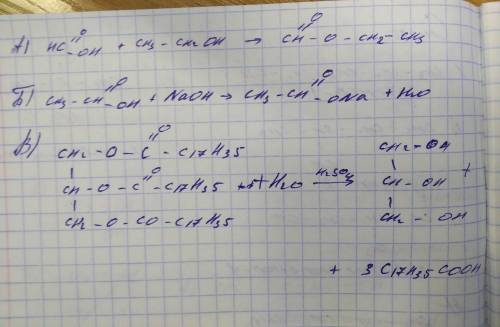 А) HC(=O)-OH + CH3-CH2OH → CH(=O)-O-CH2-CH3
Б) CH3-CH(=O)-OH + NaOH → CH3-CH(=O)-ONa + H2O
В) CH2-O-C(=O)-C17H35
CH-O-C(=O)-C17H35 + H2O H2SO4→
CH2-O-CO-C17H35
CH2-OH
CH-OH +
CH2-OH
+ 3 C17H35COOH